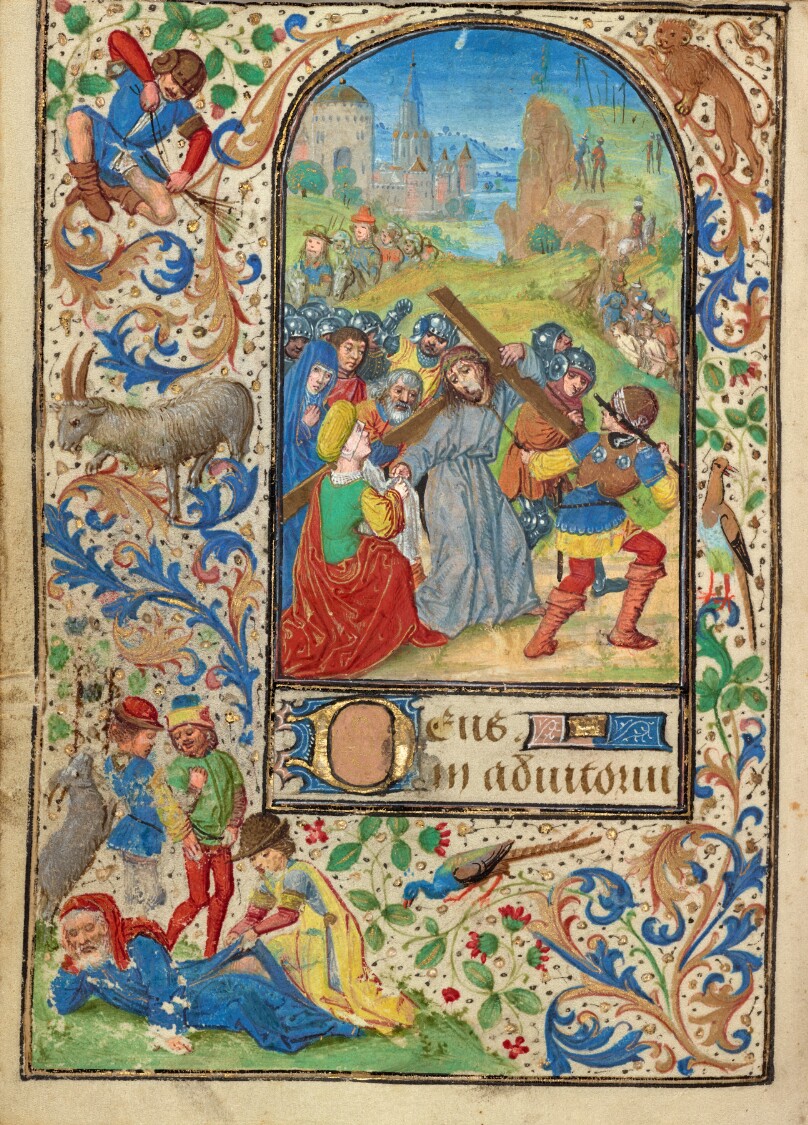 Deus.
in adiutoriu